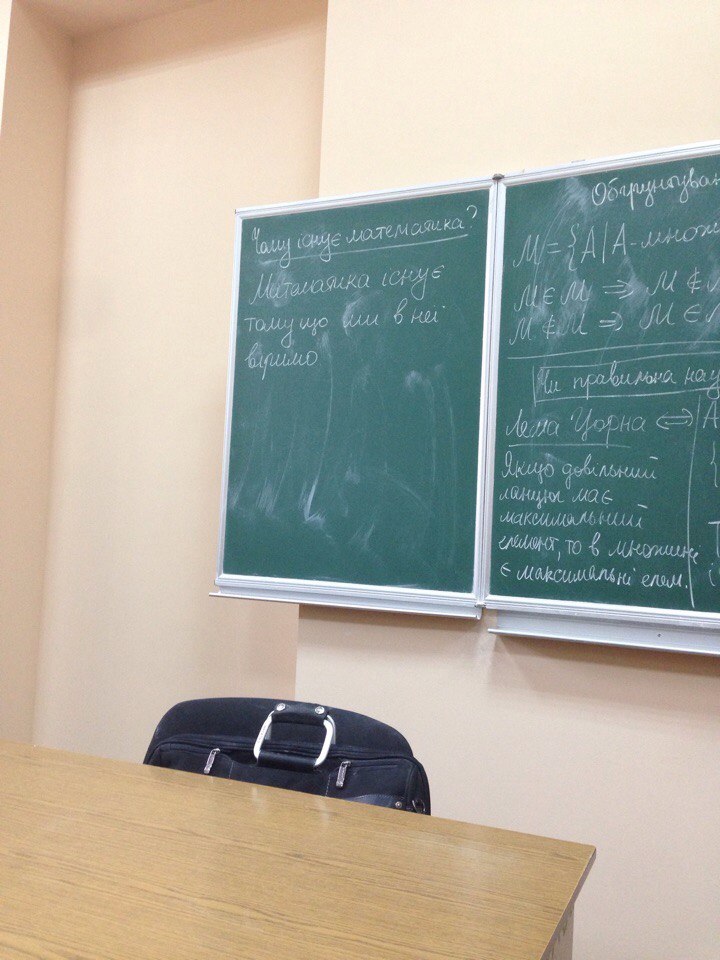 Чому існує математика?
Математика існує
тому що ми в неї
віримо
Обґрунтуван
M = {A | A - множ
M ∈ M ⇒ M ∉
M ∉ M ⇒ M ∈
Чи правильна нау
Лема Цорна ⇔ А
Якщо довільний
ланцюг має
максимальний
елемент, то в множині
є максимальні елем.